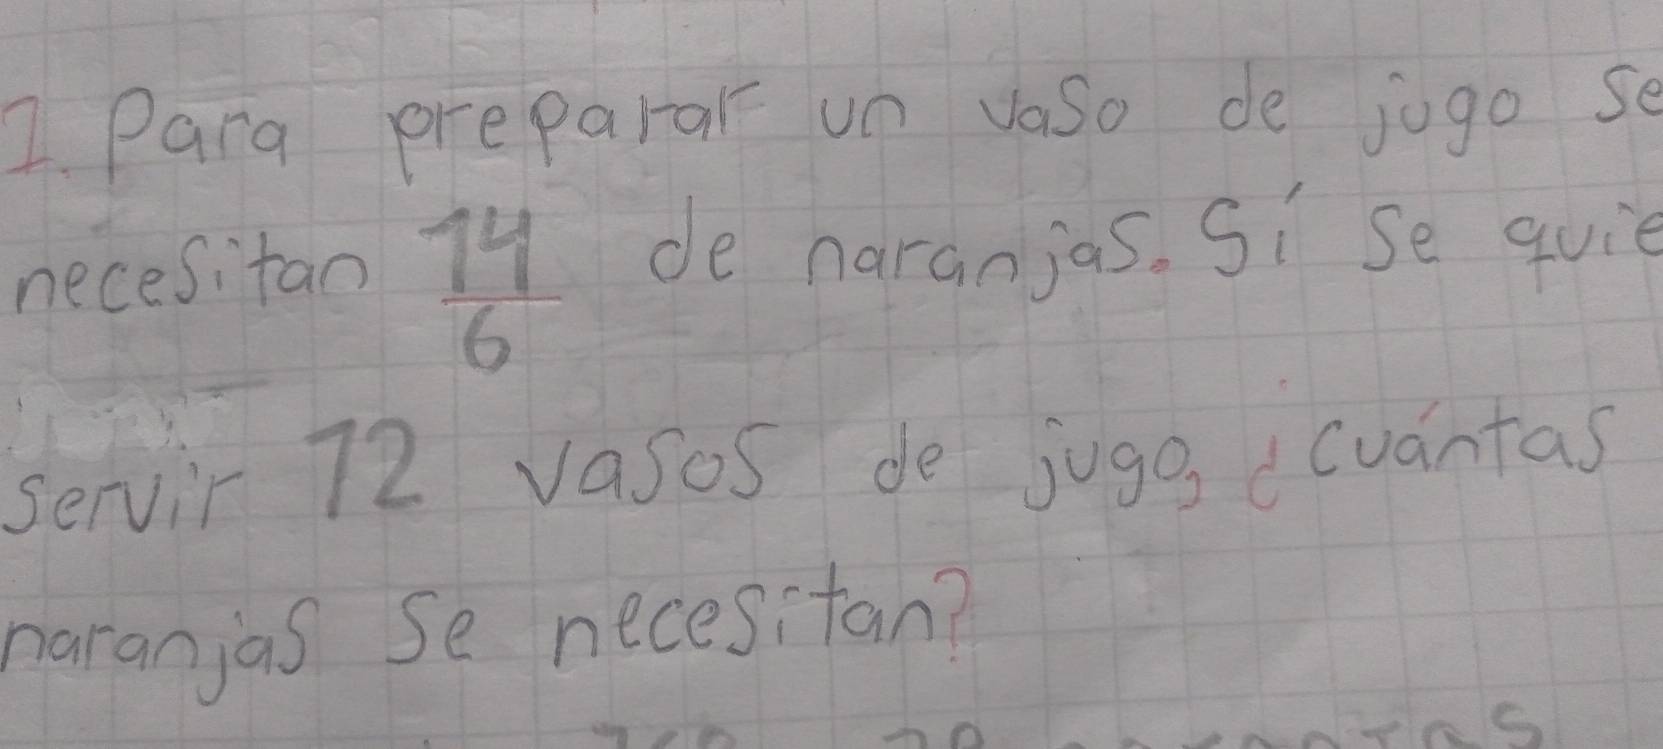 1. Para preparar un vaso de jugo se
necesitan 14/6 de naranjas. Sí se quie
servir 12 vasos de jugo, ¿cuántas
naranjas se necesitan?